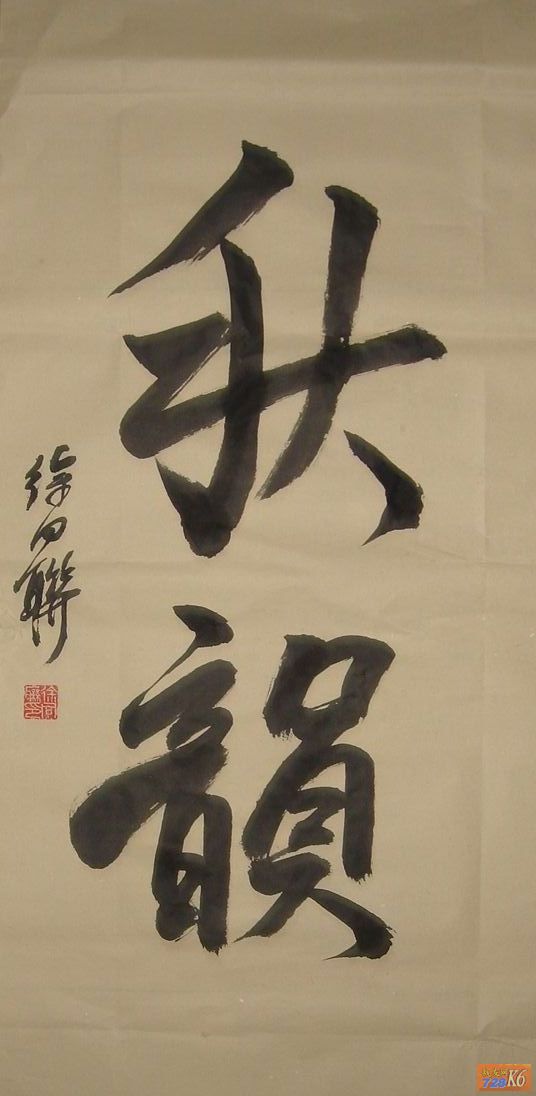 秋韻
徐向聯
728
K6